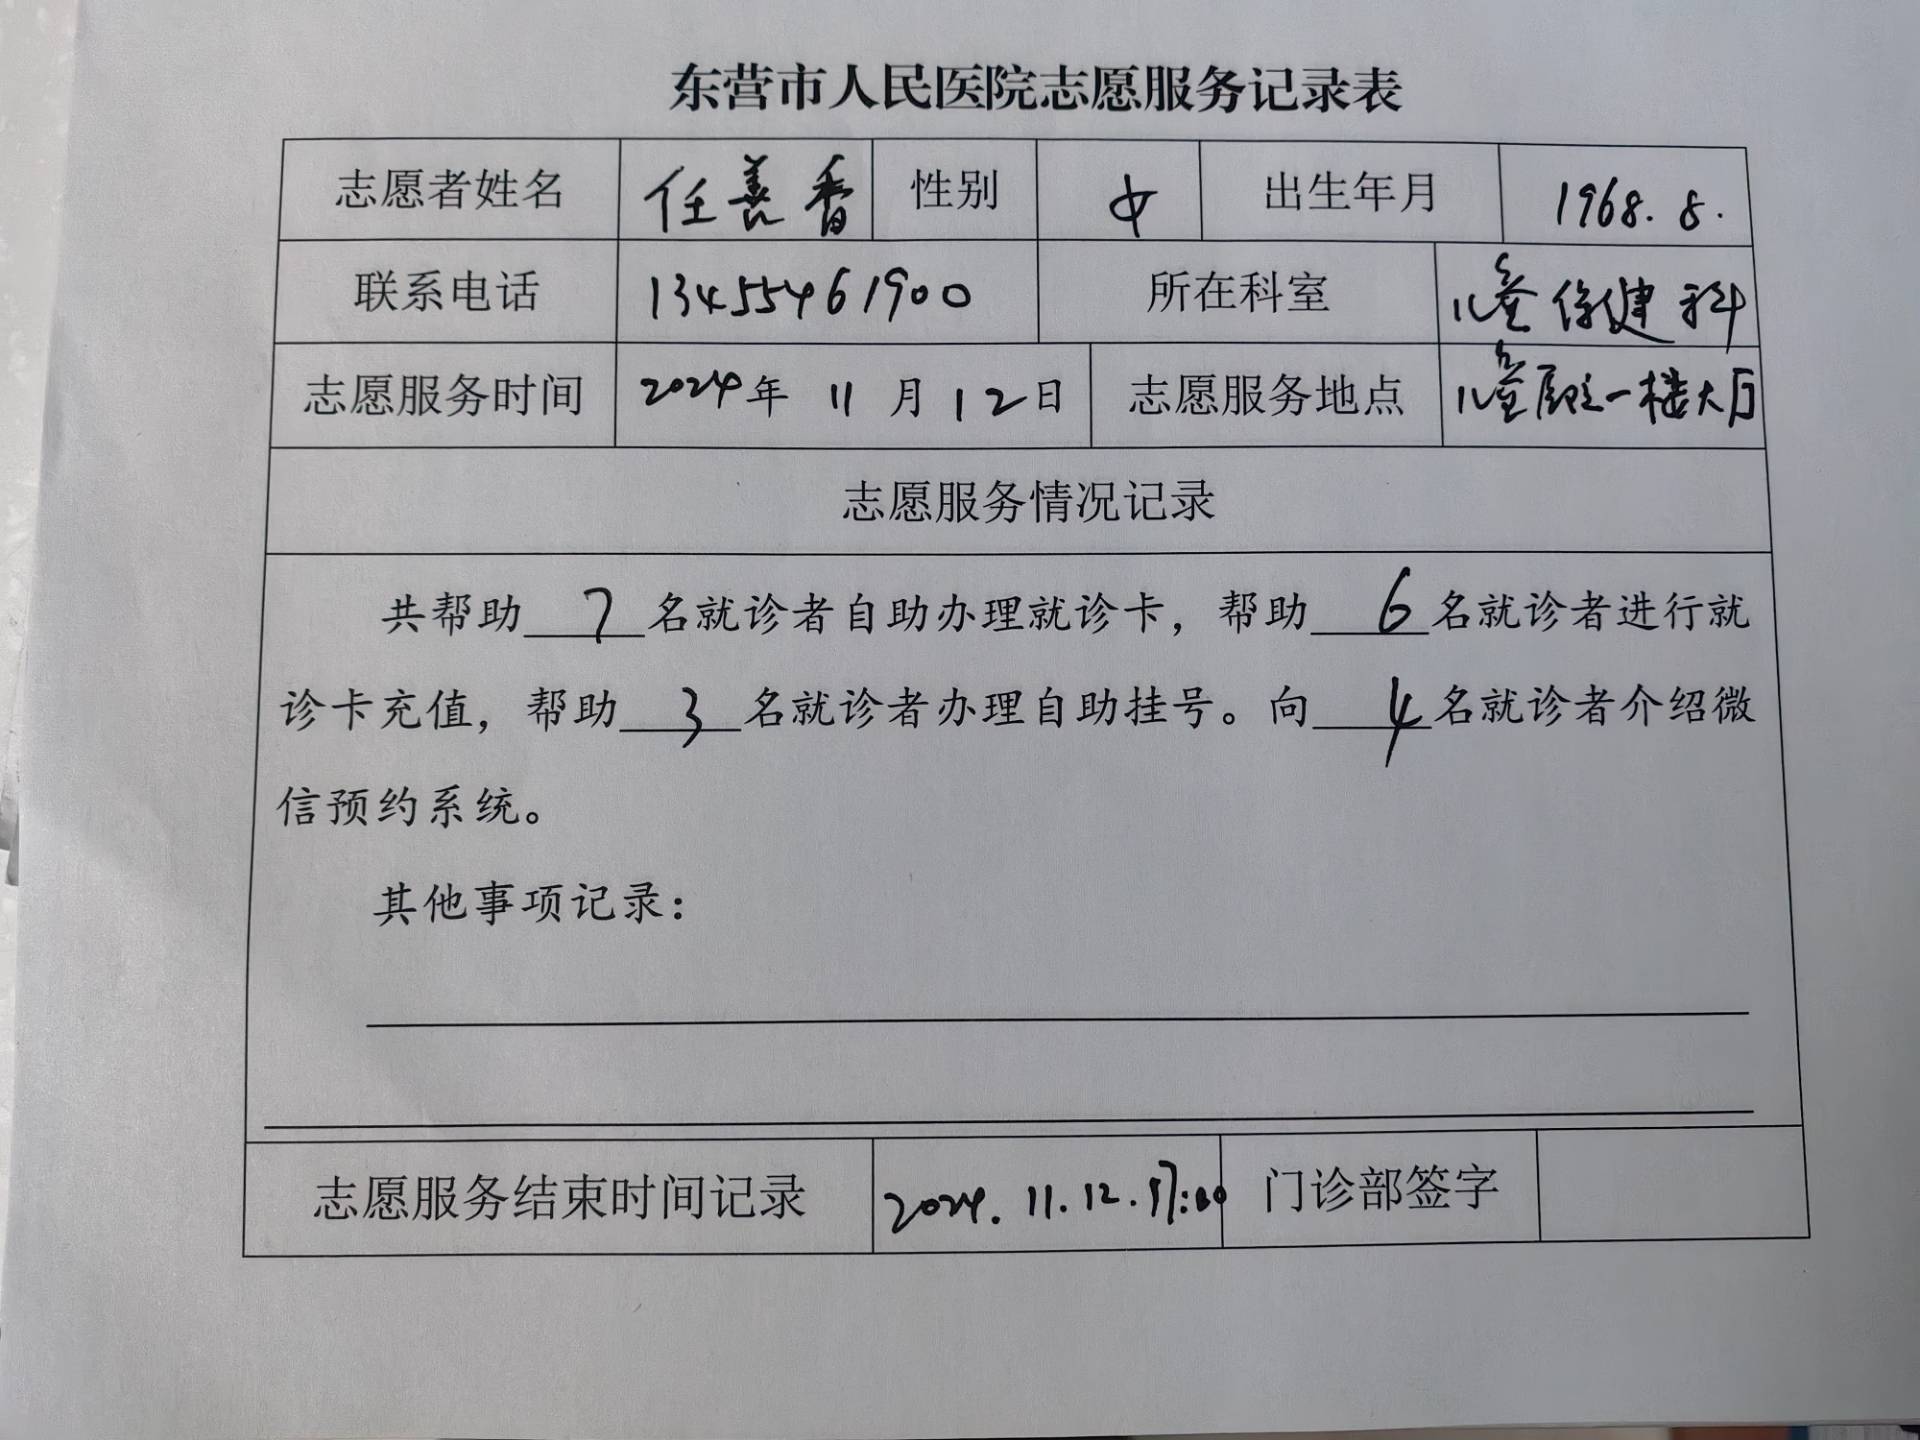 东营市人民医院志愿服务记录表
志愿者姓名 任善香 性别 女 出生年月 1968.8.
联系电话 13455461900 所在科室 儿童保健科
志愿服务时间 2024年 11月 12日 志愿服务地点 儿童医院一楼大厅
志愿服务情况记录
共帮助 7 名就诊者自助办理就诊卡，帮助 6 名就诊者进行就
诊卡充值，帮助 3 名就诊者办理自助挂号。向 4 名就诊者介绍微
信预约系统。
其他事项记录：
志愿服务结束时间记录 2024.11.12.17:00 门诊部签字